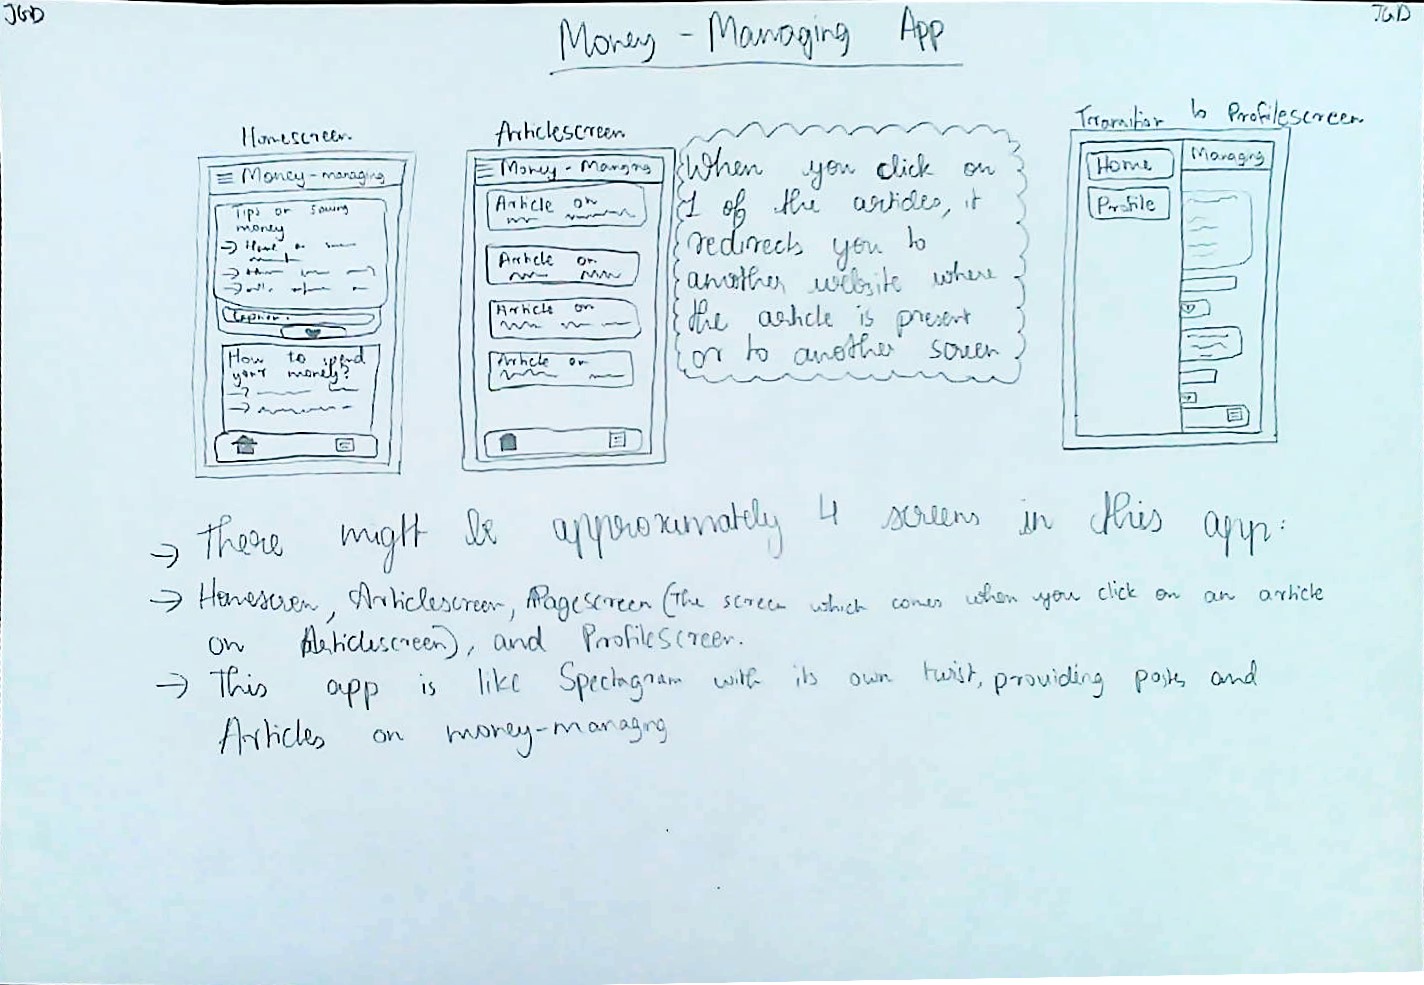 JGD
JGD
Money - Managing App
Homescreen
Money-managing
Tips on saving
money
Caption:
How to spend
your money?
Articlescreen
Money - Managing
Article on
Article on
Article on
Article on
When you click on
1 of the articles, it
redirects you to
another website where
the article is present
or to another screen
Transition to Profilescreen
Home
Profile
Managing
→ There might be approximately 4 screens in this app:
→ Homescreen, Articlescreen, Pagescreen (The screen which comes when you click on an article
on Articlescreen), and ProfileScreen.
→ This app is like Spectagram with its own twist, providing posts and
Articles on money-managing